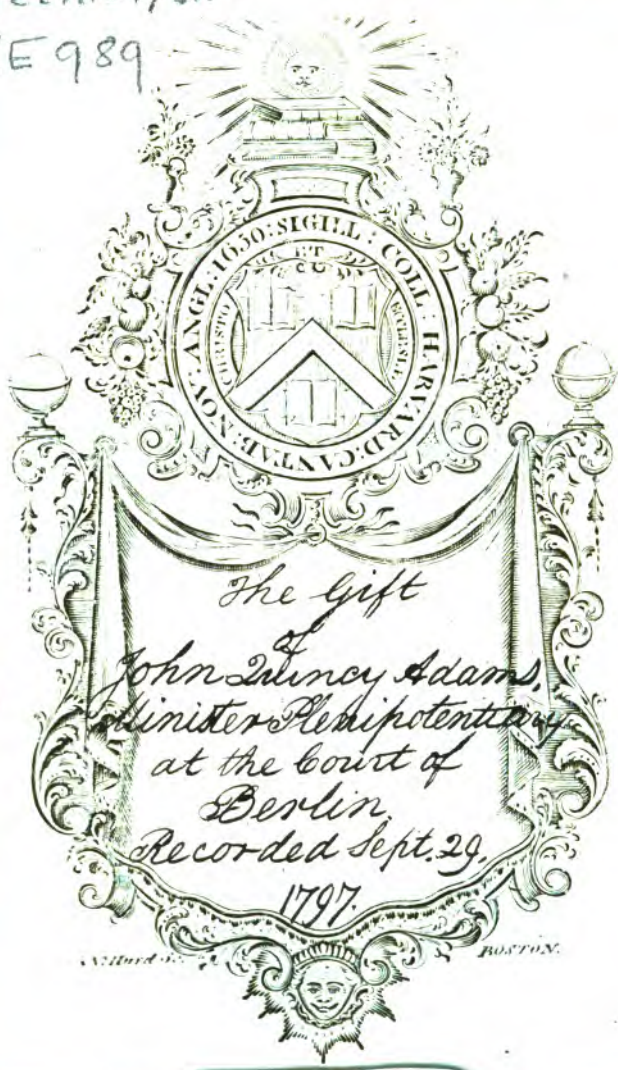 E 989
SIGILL : COLL : HARVARD : CANTAB : NOV : ANGL : 1650 :
ET
CHRISTO
ECCLESIÆ
The Gift
of
John Quincy Adams,
Minister Plenipotentiary
at the Court of
Berlin.
Recorded Sept. 29,
1797.
N. Hurd
BOSTON.